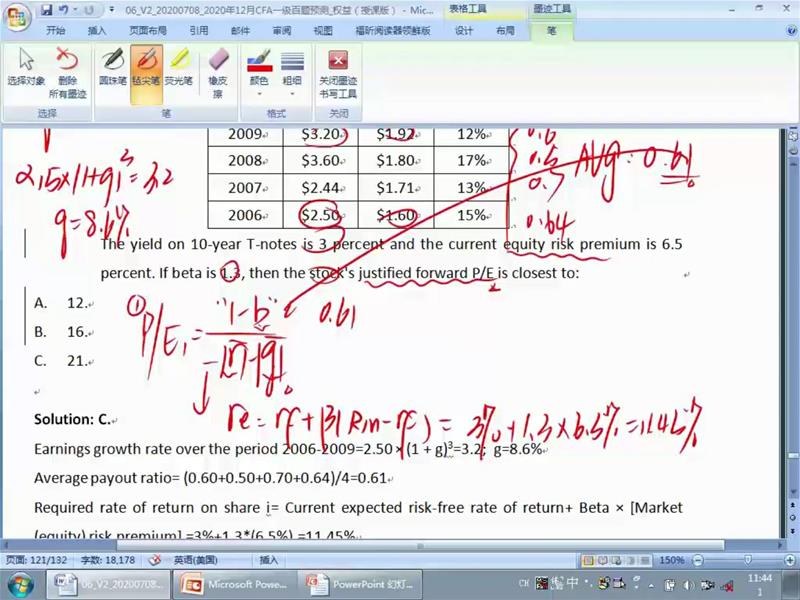 06_V2_20200708_2020年12月CFA一级百题预测_权益（授课版） - Mic...
表格工具
墨迹工具
开始 插入 页面布局 引用 邮件 审阅 视图 福昕阅读器领鲜版 设计 布局 笔
选择对象 删除所有墨迹 圆珠笔 毡尖笔 荧光笔 橡皮擦 颜色 粗细 关闭墨迹书写工具
选择 笔 格式 关闭
2009 $3.20 $1.92 12%
2008 $3.60 $1.80 17%
2007 $2.44 $1.71 13%
2006 $2.50 $1.60 15%
0.6
0.5
0.7
0.64
AVG: 0.61
g=8.6%
The yield on 10-year T-notes is 3 percent and the current equity risk premium is 6.5
percent. If beta is 1.3, then the stock's justified forward P/E is closest to:
A. 12.
B. 16.
C. 21.
① P/E₁ = "1-b" 0.61
re = rf + β(Rm-rf) = 3% + 1.3×6.5% = 11.45%
Solution: C.
Earnings growth rate over the period 2006-2009=2.50 × (1 + g)³=3.2; g=8.6%
Average payout ratio= (0.60+0.50+0.70+0.64)/4=0.61
Required rate of return on share i= Current expected risk-free rate of return+ Beta × [Market
(equity) risk premium] =3%+1.3*(6.5%) =11.45%
页面: 121/132 字数: 18,178 英语(美国) 插入 150%
06_V2_20200708... Microsoft Powe... PowerPoint 幻灯... CH 中 11:44